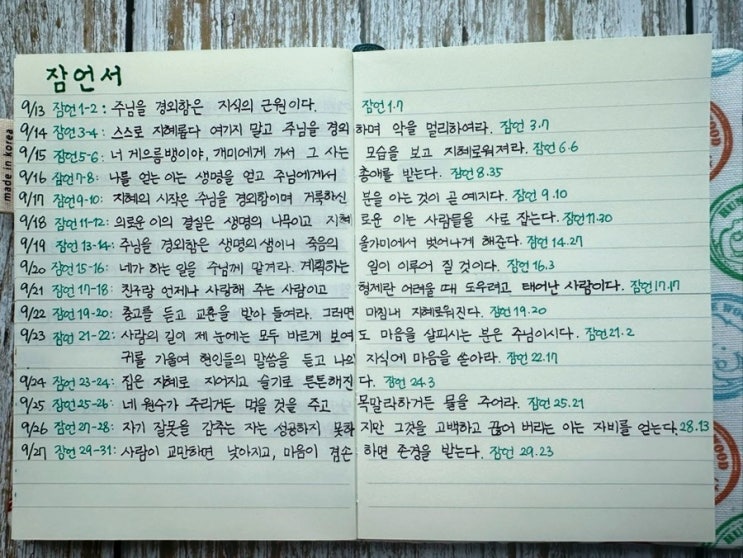 잠언서
9/13 잠언 1-2 : 주님을 경외함은 지식의 근원이다. 잠언 1.7
9/14 잠언 3-4 : 스스로 지혜롭다 여기지 말고 주님을 경외하며 악을 멀리하여라. 잠언 3.7
9/15 잠언 5-6 : 너 게으름뱅이야, 개미에게 가서 그 사는 모습을 보고 지혜로워져라. 잠언 6.6
9/16 잠언 7-8 : 나를 얻는 이는 생명을 얻고 주님에게서 총애를 받는다. 잠언 8.35
9/17 잠언 9-10 : 지혜의 시작은 주님을 경외함이며 거룩하신 분을 아는 것이 곧 예지다. 잠언 9.10
9/18 잠언 11-12 : 의로운 이의 결실은 생명의 나무이고 지혜로운 이는 사람들을 사로 잡는다. 잠언 11.30
9/19 잠언 13-14 : 주님을 경외함은 생명의 샘이니 죽음의 올가미에서 벗어나게 해준다. 잠언 14.27
9/20 잠언 15-16 : 네가 하는 일을 주님께 맡겨라. 계획하는 일이 이루어 질 것이다. 잠언 16.3
9/21 잠언 17-18 : 친구랑 언제나 사랑해 주는 사람이고 형제란 어려울 때 도우려고 태어난 사람이다. 잠언 17.17
9/22 잠언 19-20 : 충고를 듣고 교훈을 받아 들여라. 그러면 마침내 지혜로워진다. 잠언 19.20
9/23 잠언 21-22 : 사람의 길이 제 눈에는 모두 바르게 보여도 마음을 살피시는 분은 주님이시다. 잠언 21.2
귀를 기울여 현인들의 말씀을 듣고 나의 지식에 마음을 쏟아라. 잠언 22.17
9/24 잠언 23-24 : 집은 지혜로 지어지고 슬기로 튼튼해진다. 잠언 24.3
9/25 잠언 25-26 : 네 원수가 주리거든 먹을 것을 주고 목말라하거든 물을 주어라. 잠언 25.21
9/26 잠언 27-28 : 자기 잘못을 감추는 자는 성공하지 못하지만 그것을 고백하고 끊어 버리는 이는 자비를 얻는다. 28.13
9/27 잠언 29-31 : 사람이 교만하면 낮아지고, 마음이 겸손하면 존경을 받는다. 잠언 29.23
made in korea